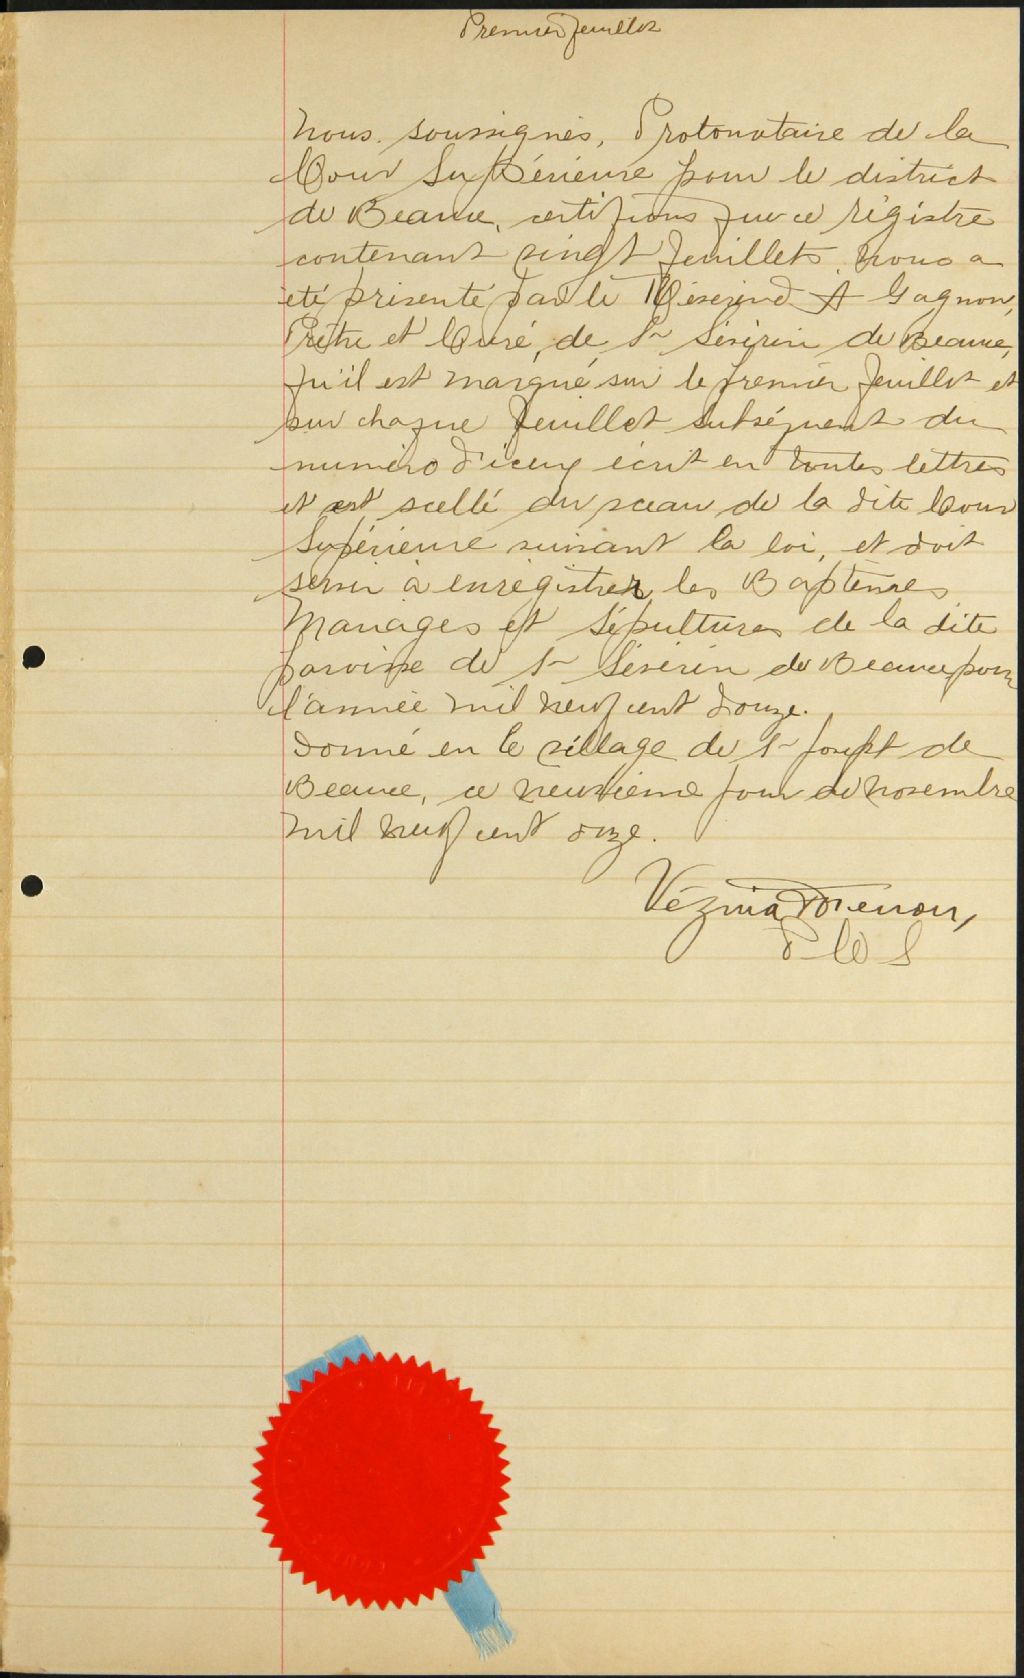 Premier feuillet
Nous soussignés, Protonotaire de la
Cour Supérieure pour le district
de Beauce, certifions que ce régistre
contenant vingt feuillets nous a
été présenté par le Révérend A Gagnon,
Prêtre et Curé, de St Séverin de Beauce,
qu'il est marqué sur le premier feuillet et
sur chaque feuillet subséquent du
numéro d'iceux écrit en toutes lettres
et est scellé du sceau de la dite Cour
Supérieure suivant la loi, et doit
servir à enrégistrer les Baptêmes
Mariages et Sépultures de la dite
paroisse de St Séverin de Beauce pour
l'année mil neuf cent douze.
Donné en le village de St Joseph de
Beauce, ce neuvième jour de novembre
mil neuf cent onze.
Vézina
P C S